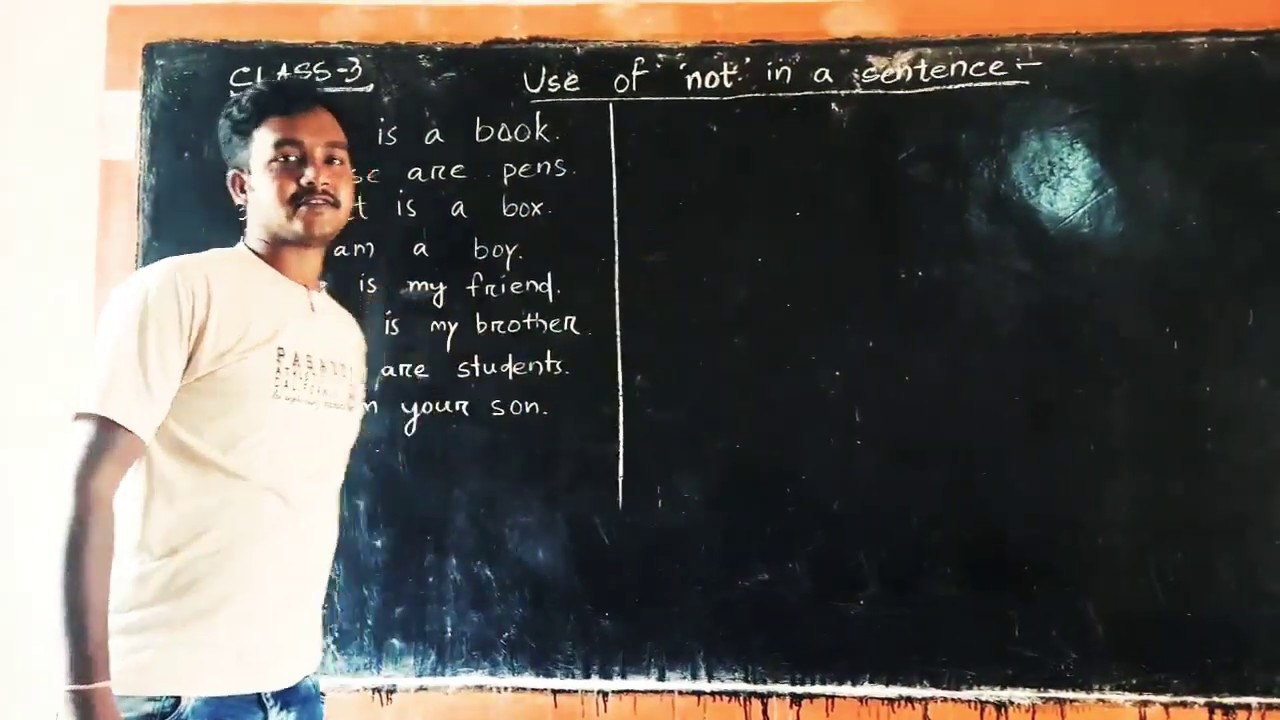 CLASS-3
Use of 'not' in a sentence:-
is a book.
are pens.
is a box.
am a boy.
is my friend.
is my brother.
are students.
your son.